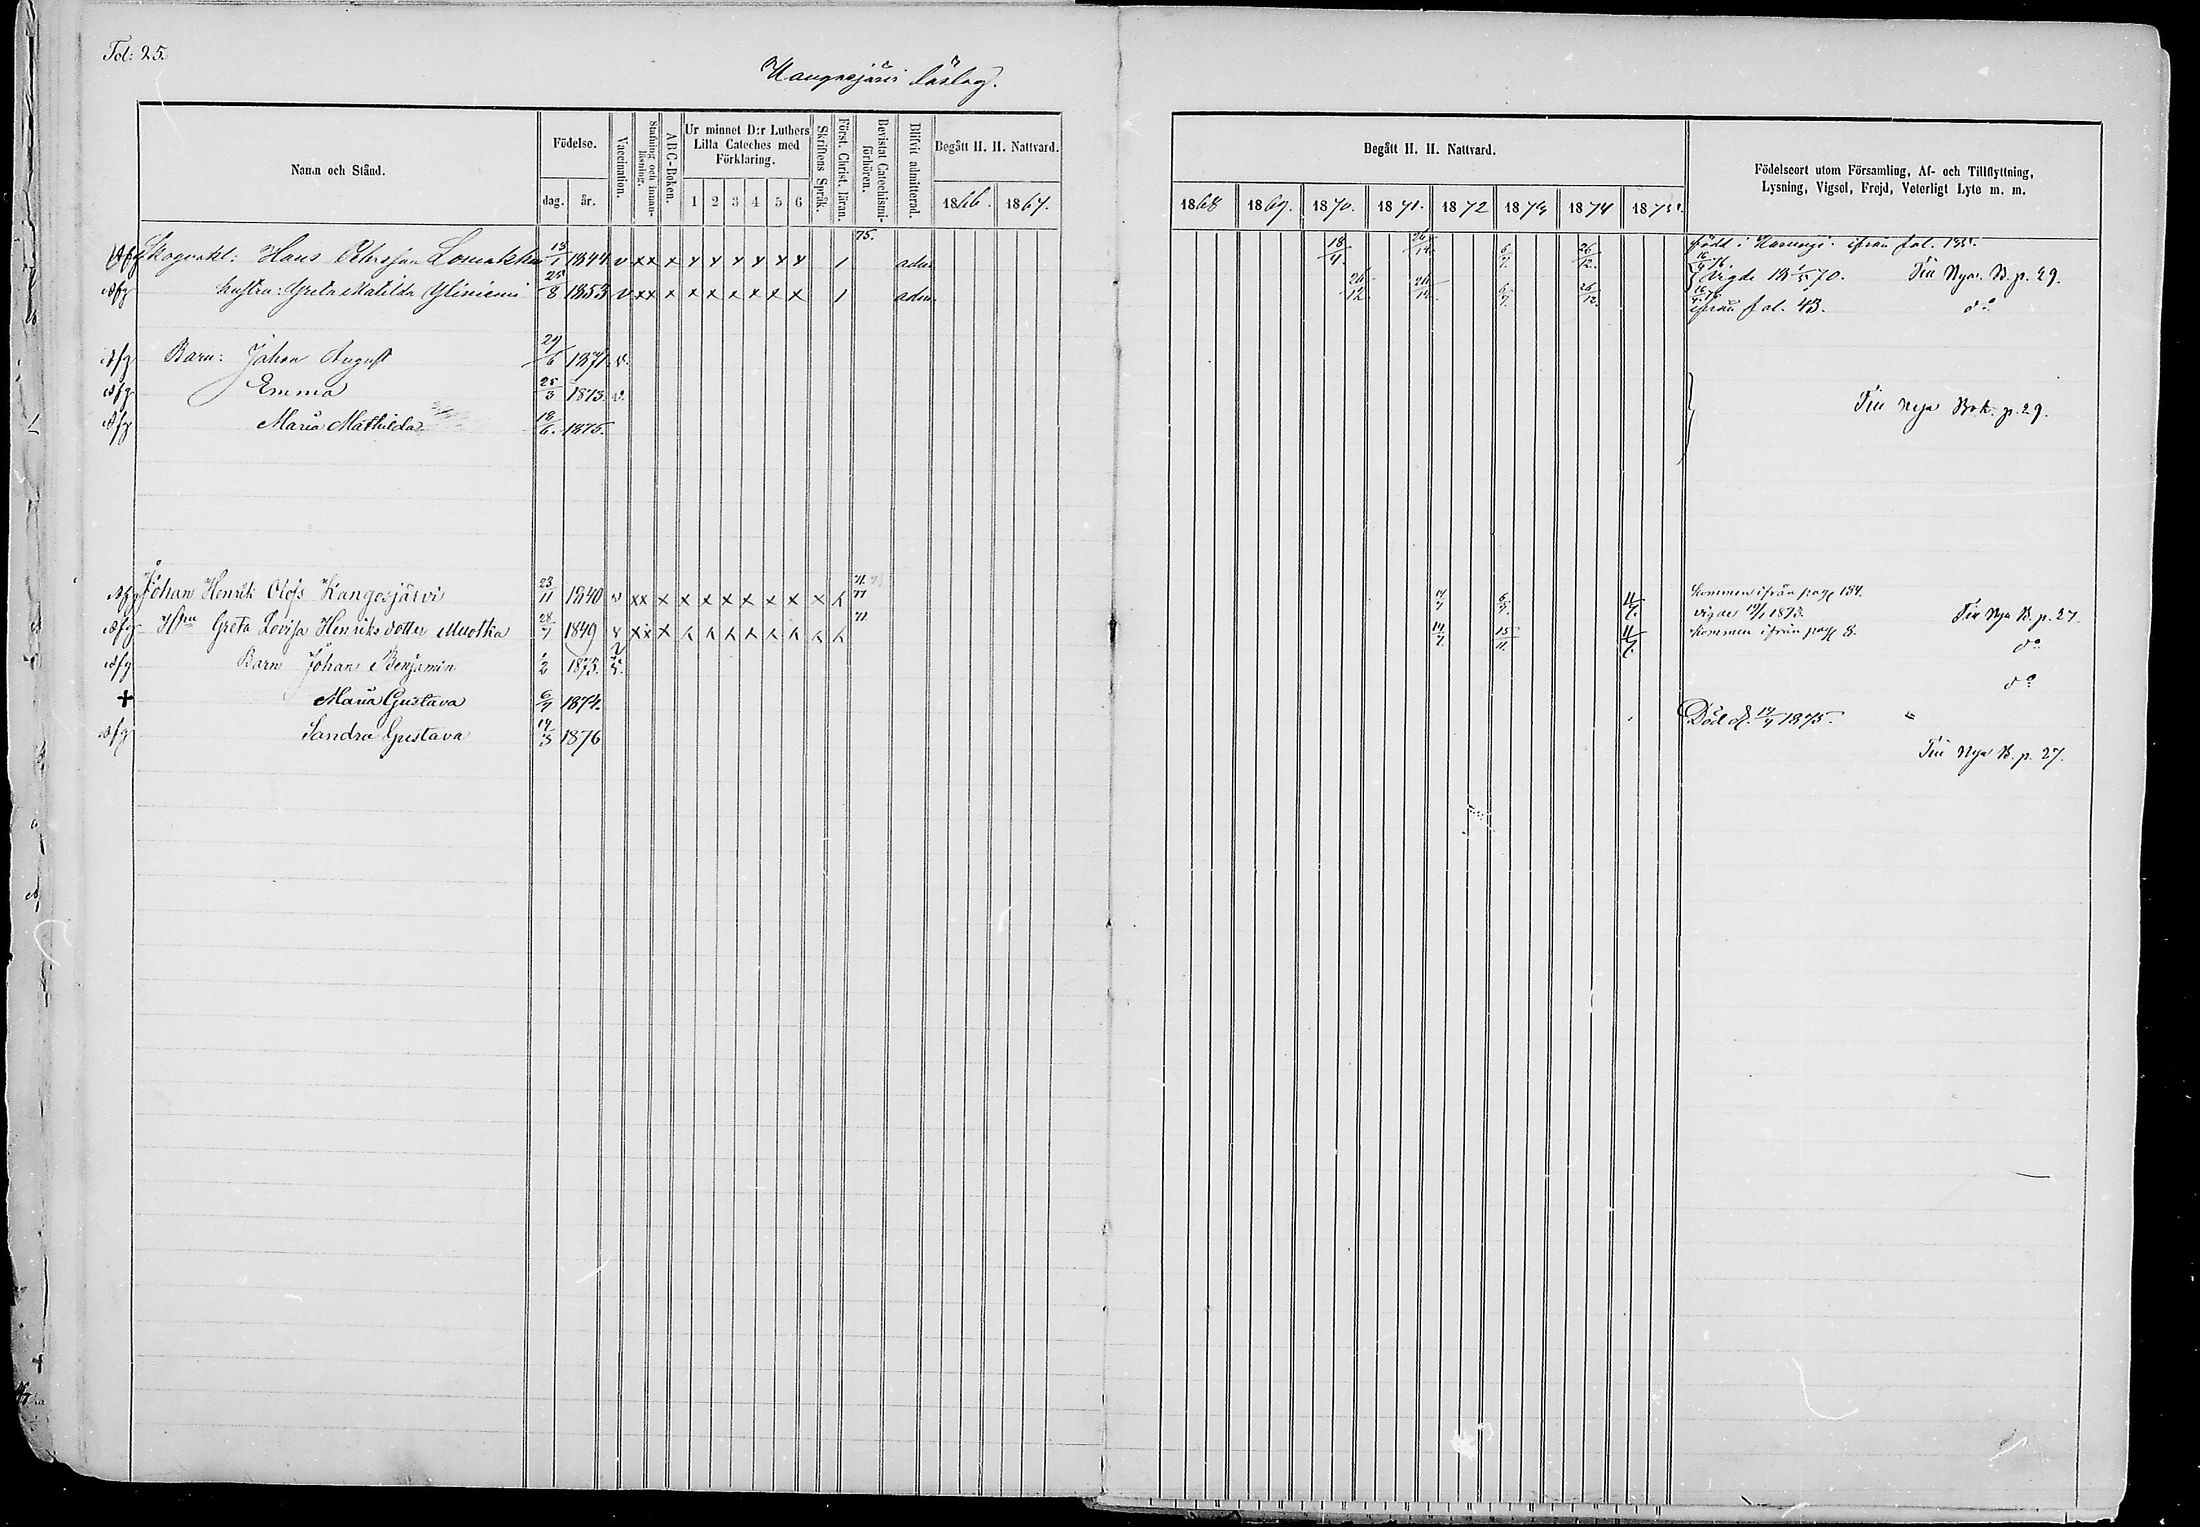 Fol: 25.
Kangosjärvi läslag.
Namn och Stånd.
Födelse.
dag. år.
Vaccination.
Stafning och innanläsning.
ABC-Boken.
Ur minnet D:r Luthers Lilla Cateches med Förklaring.
1 2 3 4 5 6
Skriftens Språk.
Först. Christ. Läran.
Bevistat Catechismiförhören.
Blifvit admitterad.
Begått H. H. Nattvard.
1866. 1867.
Begått H. H. Nattvard.
1868 1869. 1870. 1871. 1872 1873 1874 1875.
Födelseort utom Församling, Af- och Tillflyttning,
Lysning, Vigsel, Frejd, Veterligt Lyte m. m.
75.
Afg Skogvakt: Hans Pehrsson 13/1 1844 v xx x x x x x x x 1 adm 18/4. 26/12. 6/7. 26/12. född i Karungi. ifrån fol. 135.
Vigde 18 70. Till Nya. B. p. 29.
Afg hustru: Greta Matilda Yliniemi 25/8 1853 v xx x x x x x x x 1 adm 26/12. 26/12. 6/7. 26/12. ifrån fol. 43. do
Afg Barn: Johan August 29/6 1871. v.
Afg Emma 25/3 1873. v.
Till Nya Bok. p. 29.
Afg Maria Mathilda 18/6. 1875.
Afg Johan Henrik Olofs Kangosjärvi 23/11 1840 v xx x x x x x x x x x 71. 77 14/7 6/7. 11/7. kommen ifrån pag 134.
vigde 1873. Till Nya B. p. 27.
Afg Hstru Greta Lovisa Henriksdotter Muotka 28/7 1849 v xx x x x x x x x x x 77 14/7. 15/11. 11/7. kommen ifrån pag 8. do
Afg Barn Johan Benjamin 1/2 1873. v. do
+ Maria Gustava 6/7 1874. Död d. 14/7 1875. "
Afg Sandra Gustava 14/3 1876
Till Nya B. p. 27.